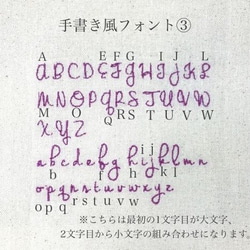 手書き風フォント③
A EFG IJ L
ABCDEFGHIJKL
MNOPQRSTUVW
M O QRS TUVW
XYZ
i j
abcdefghijklmn
b f h kl
opqrstuvwxyz
opq rstuvw
※こちらは最初の1文字目が大文字、
2文字目から小文字の組み合わせになります。